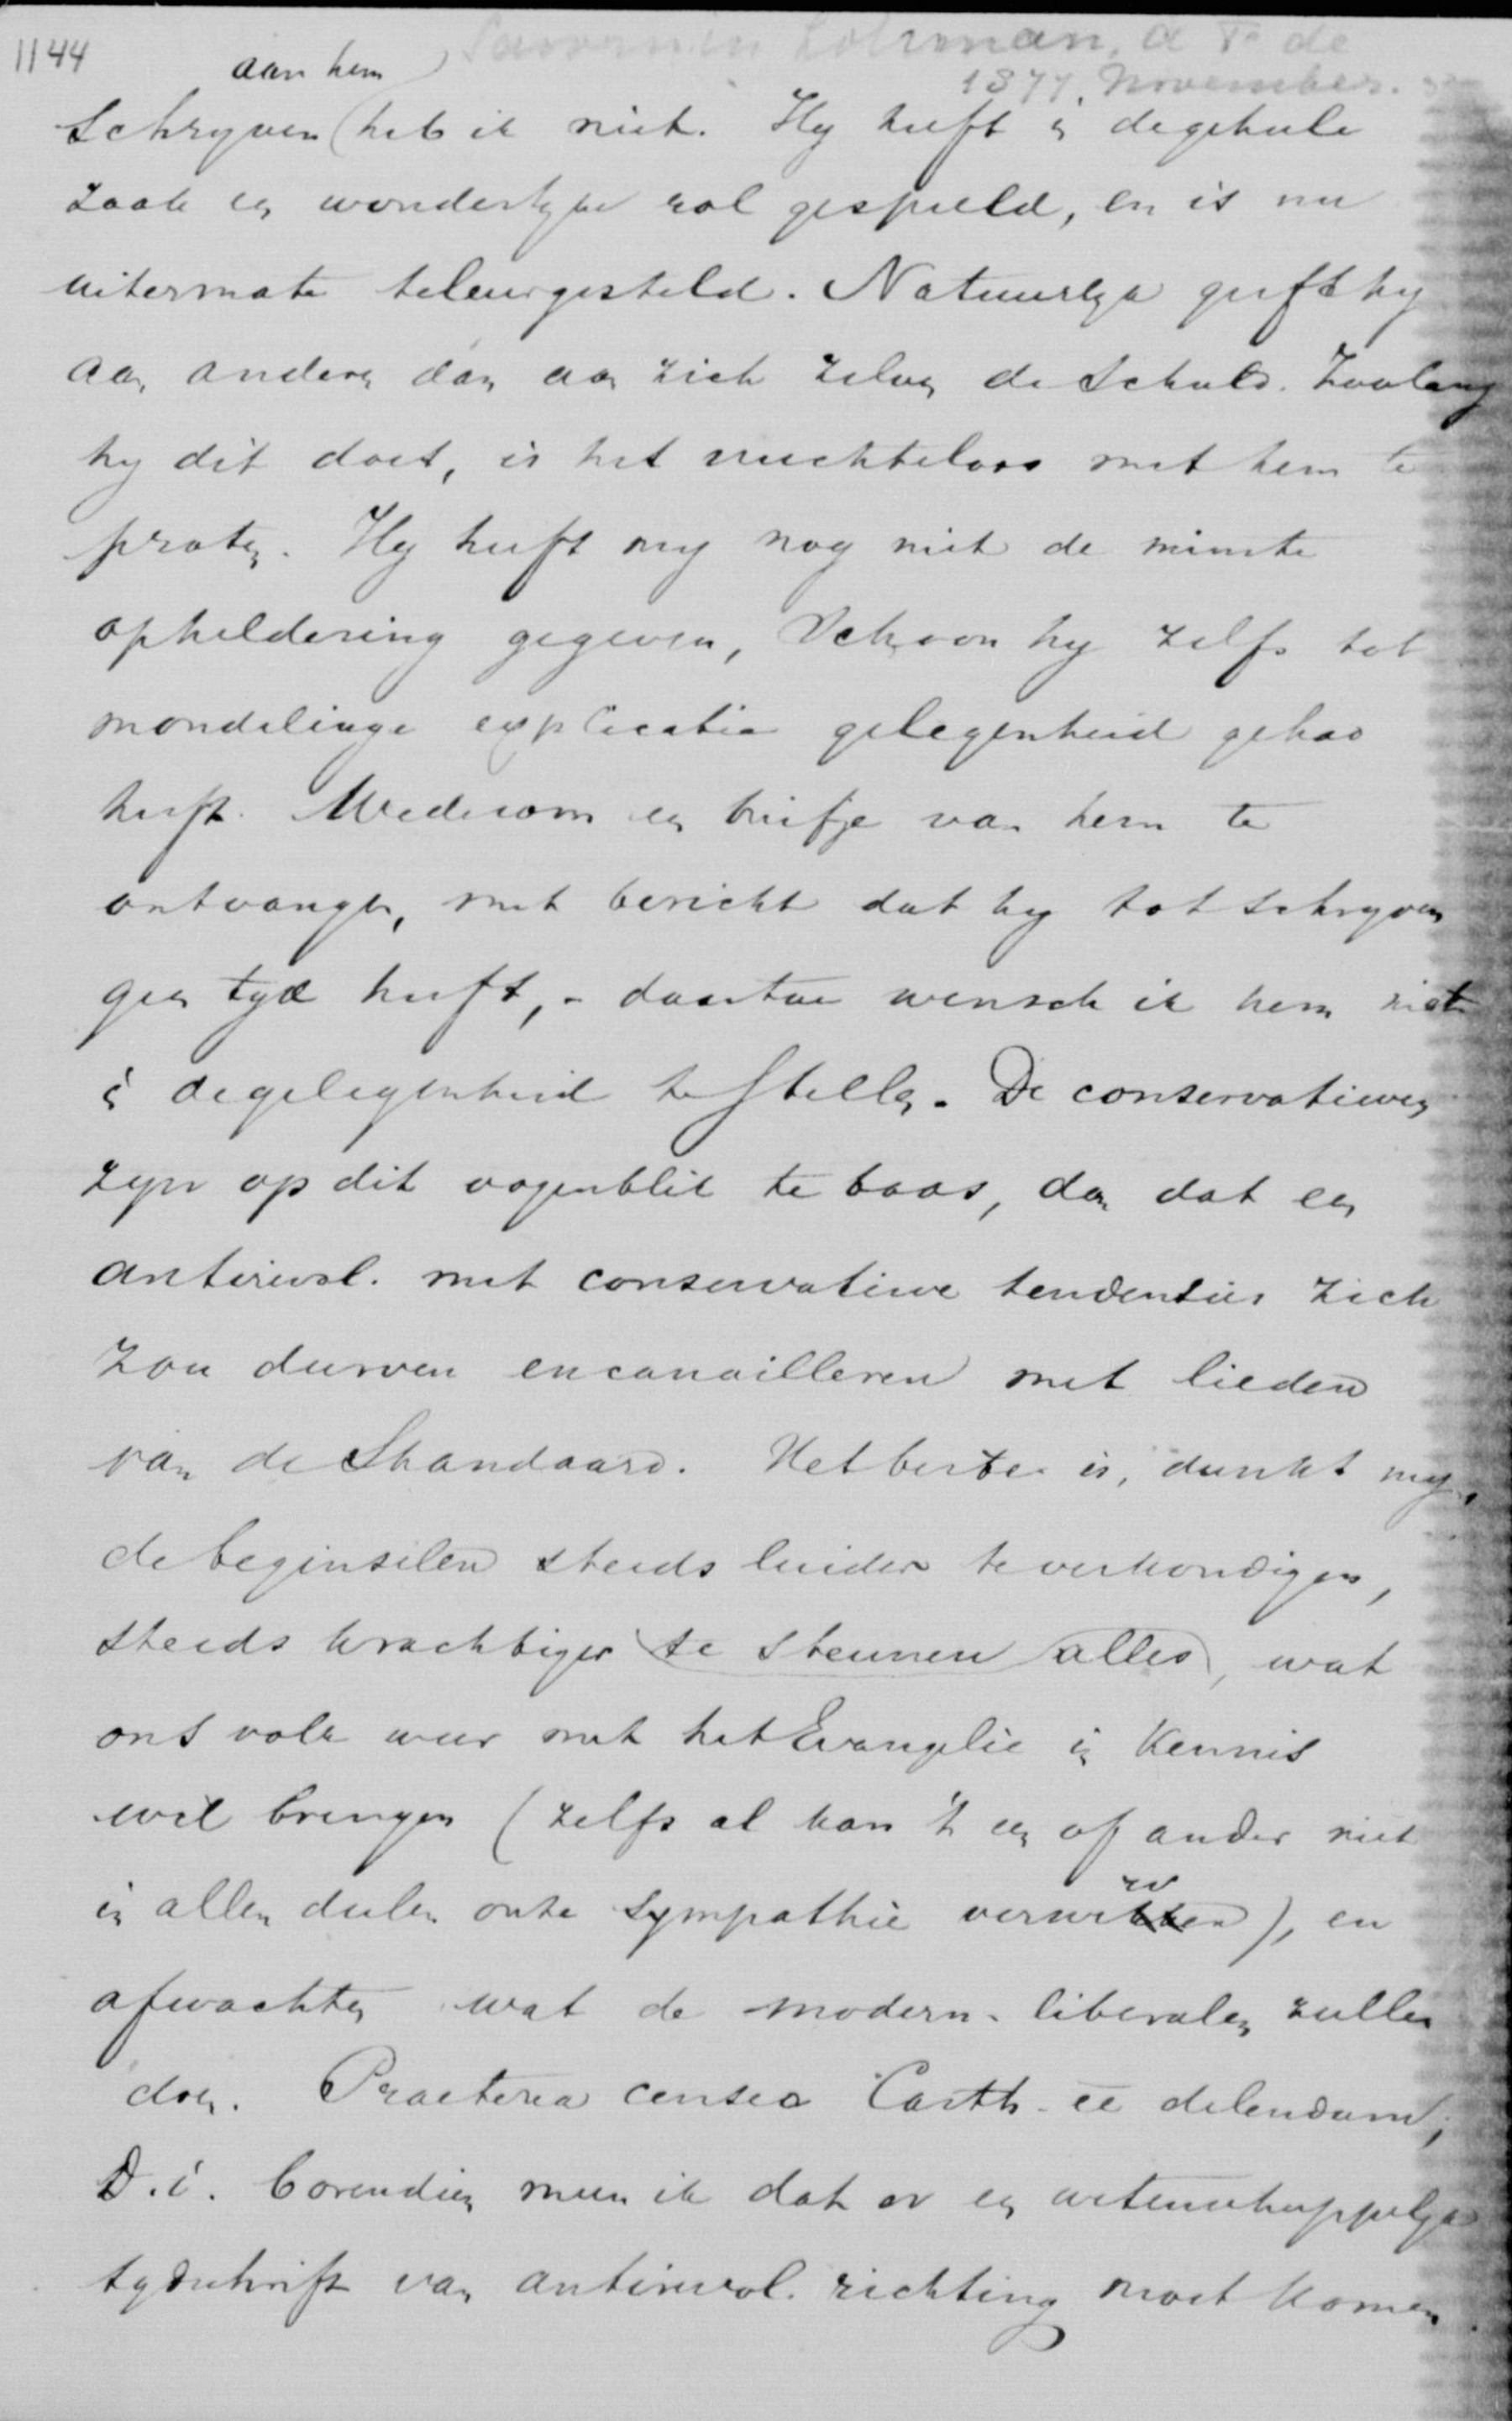 1144
Savornin Lohman, A F de
1877, November.
aan hem
schryven heb ik niet. Hy heeft in de geheele
zaak een wonderlyke rol gespeeld, en is nu
uitermate teleurgesteld. Natuurlyk geeft hy
aan anderen dan aan zich zelven de schuld. Zoolang
hy dit doet, is het vruchteloos met hem te
praten. Hy heeft my nog niet de minste
opheldering gegeven, schoon hy zelfs tot
mondelinge explicatie gelegenheid gehad
heeft. Wederom een briefje van hem te
ontvangen, met bericht dat hy tot schryven
geen tyd heeft, - daartoe wensch ik hem niet
in de gelegenheid te stellen. De conservatieven
zyn op dit oogenblik te boos, dan dat een
antirevol. met conservatieve tendenties zich
zou durven encanailleren met lieden
van de Standaard. Het beste is, dunkt my,
de beginselen steeds luider te verkondigen,
steeds krachtiger te steunen alles, wat
ons volk weer met het Evangelie in kennis
wil brengen (zelfs al kan 't een of ander niet
in allen deelen onze sympathie verwerven), en
afwachten wat de modern-liberalen zullen
doen. Praeterea censeo Carth. ee delendam;
D.i. bovendien meen ik dat er een wetenschappelyk
tydschrift van antirevol. richting moet komen.